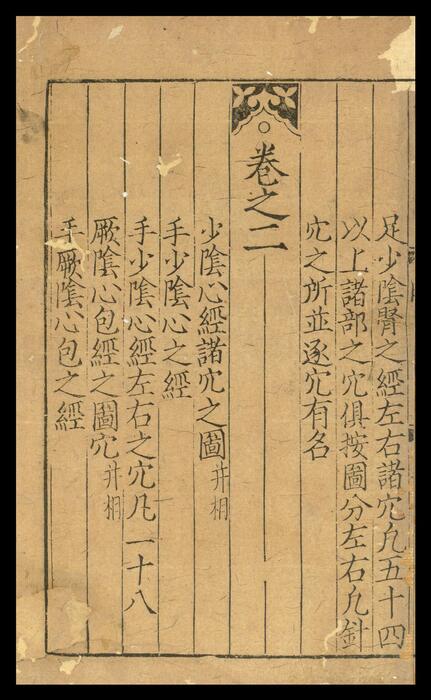 足少陰腎之經左右諸穴凢五十四
以上諸部之穴俱按圖分左右凢針
穴之所並逐穴有名
卷之二
少陰心經諸穴之圖并相
手少陰心之經
手少陰心經左右之穴凡一十八
厥陰心包經之圖穴并相
手厥陰心包之經